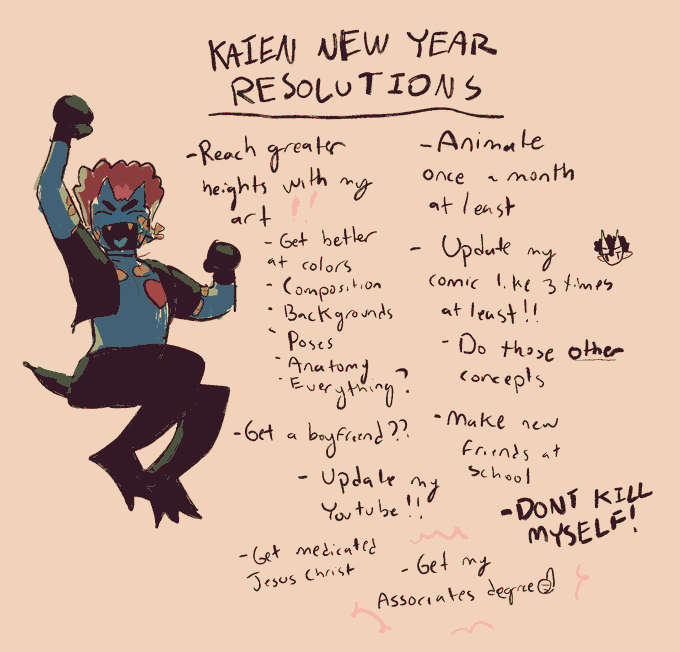 KAIEN NEW YEAR
RESOLUTIONS
-Reach greater
heights with my
art !!
- Get better
at colors
- Composition
- Backgrounds
- Poses
- Anatomy
- Everything?
-Get a boyfriend??
- Update my
Youtube!!
-Get medicated
Jesus Christ
-Animate
once a month
at least
- Update my
comic like 3 times
at least!!
- Do those other
concepts
-Make new
friends at
school
-DONT KILL
MYSELF!
-Get my
Associates degree